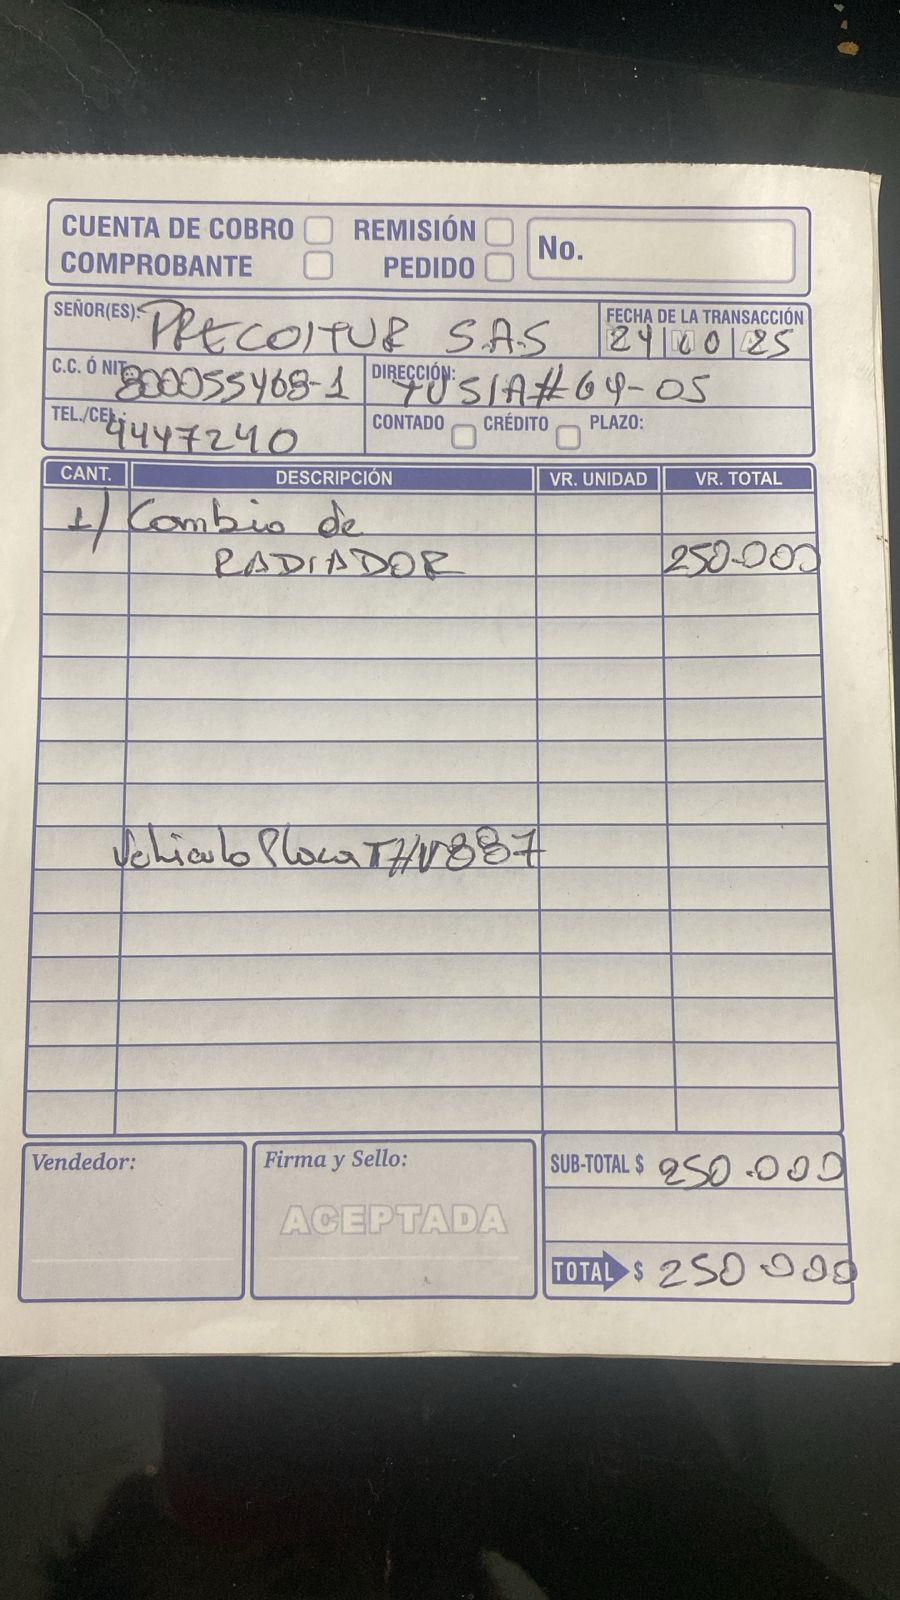 CUENTA DE COBRO REMISIÓN
COMPROBANTE PEDIDO
No.
SEÑOR(ES): PRECOLTUR S.A.S
FECHA DE LA TRANSACCIÓN
24 10 25
C.C. Ó NIT. 800055468-1
DIRECCIÓN: # 64-05
TEL./CEL.: 4447240
CONTADO CRÉDITO PLAZO:
CANT. DESCRIPCIÓN VR. UNIDAD VR. TOTAL
1/ Cambio de
RADIADOR 250.000
Vehiculo Placa THV887
Vendedor:
Firma y Sello:
ACEPTADA
SUB-TOTAL $ 250.000
TOTAL $ 250.000